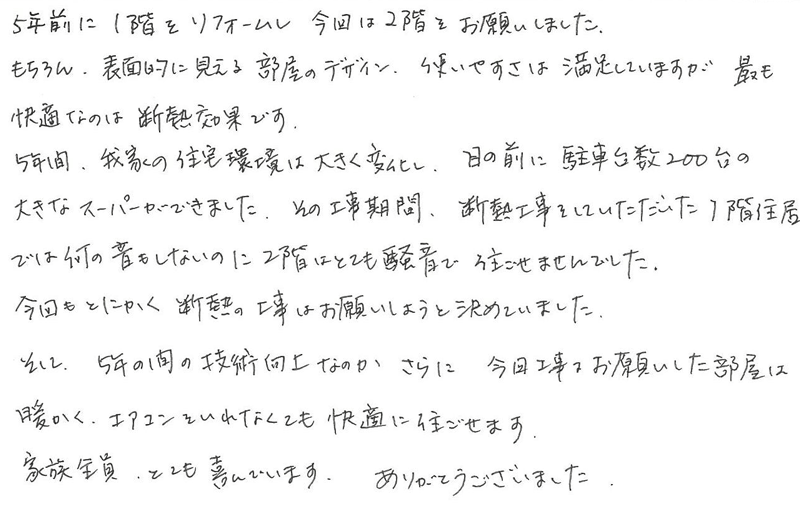 5年前に1階をリフォームし今回は2階をお願いしました.
もちろん、表面的に見える部屋のデザイン、使いやすさは満足していますが最も
快適なのは断熱効果です.
5年間、我家の住宅環境は大きく変化し、目の前に駐車台数200台の
大きなスーパーができました. その工事期間、断熱工事をしていただいた1階住居
では何の音もしないのに2階はとても騒音で住ごせませんでした.
今回もとにかく断熱の工事はお願いしようと決めていました.
そして、5年の間の技術向上なのかさらに今回工事をお願いした部屋は
暖かく、エアコンをいれなくても快適に住ごせます.
家族全員、とても喜んでいます. ありがとうございました.